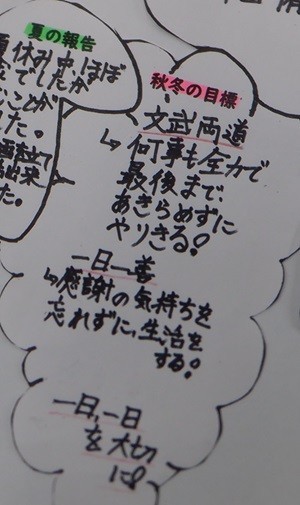 夏の報告
夏休み中ほぼ
でしたか
ことが
した。
立て
出来
た。
秋冬の目標
文武両道
↳何事も全力で
最後まで、
あきらめずに
やりきる!
一日一善
↳感謝の気持ちを
忘れずに、生活を
する!
一日、一日
を大切
に!